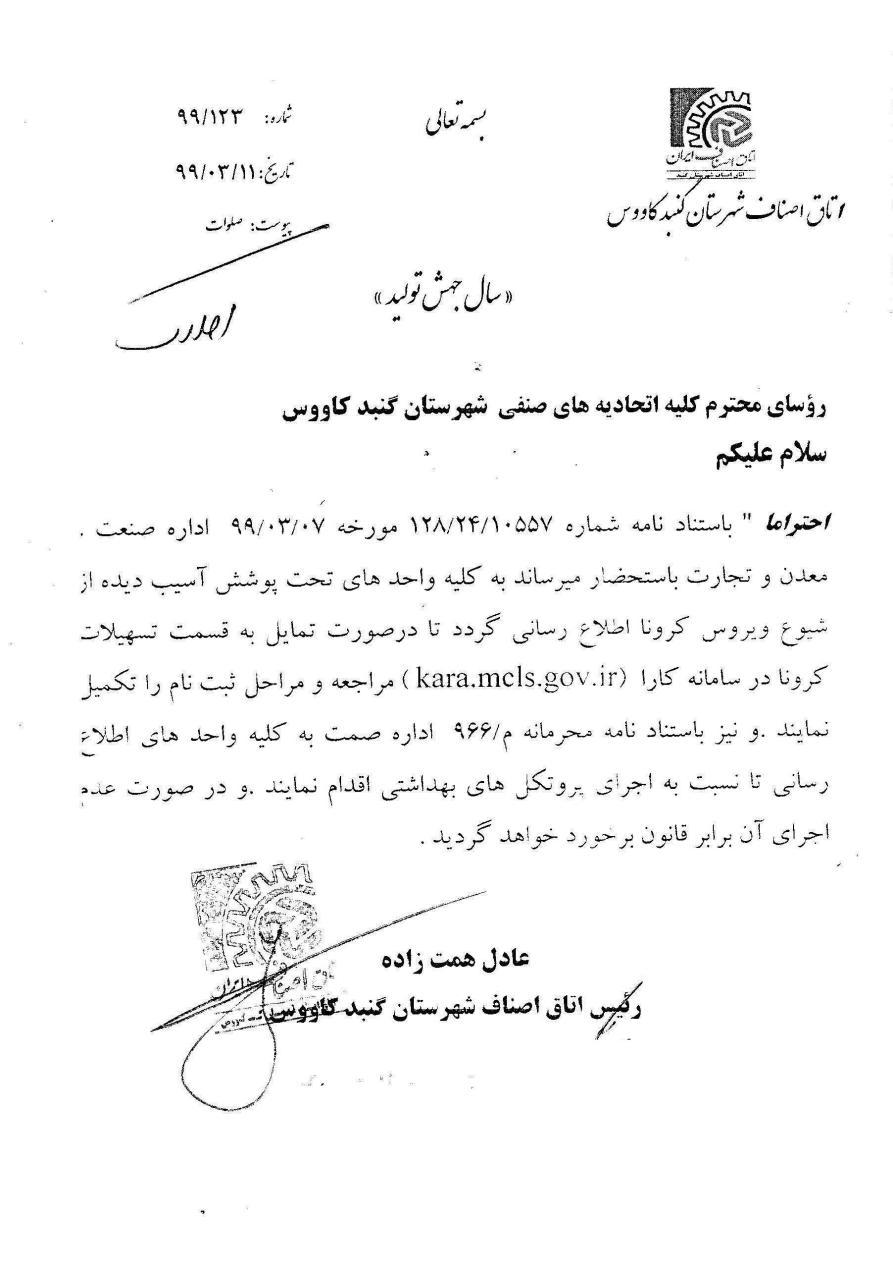 بسمه تعالی
شماره: ۹۹/۱۲۳
تاریخ: ۹۹/۰۳/۱۱
پیوست: صلوات
اتاق اصناف ایران
اتاق اصناف شهرستان گنبد کاووس
«سال جهش تولید»
رؤسای محترم کلیه اتحادیه های صنفی شهرستان گنبد کاووس
سلام علیکم
احتراما " باستناد نامه شماره ۱۲۸/۲۴/۱۰۵۵۷ مورخه ۹۹/۰۳/۰۷ اداره صنعت .
معدن و تجارت باستحضار میرساند به کلیه واحد های تحت پوشش آسیب دیده از
شیوع ویروس کرونا اطلاع رسانی گردد تا درصورت تمایل به قسمت تسهیلات
کرونا در سامانه کارا (kara.mcls.gov.ir) مراجعه و مراحل ثبت نام را تکمیل
نمایند .و نیز باستناد نامه محرمانه م/۹۶۶ اداره صمت به کلیه واحد های اطلاع
رسانی تا نسبت به اجرای پروتکل های بهداشتی اقدام نمایند .و در صورت عدم
اجرای آن برابر قانون برخورد خواهد گردید .
عادل همت زاده
رئیس اتاق اصناف شهرستان گنبد کاووس